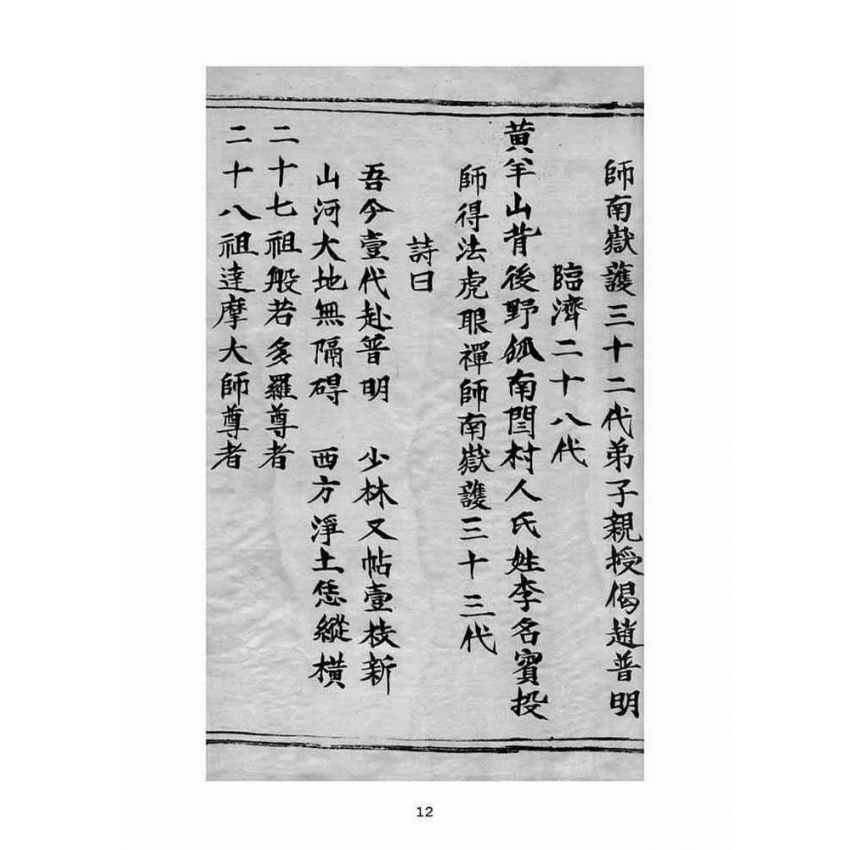 師南嶽護三十二代弟子親授偈趙普明
臨濟二十八代
黃羊山背後野狐南閆村人氏姓李名賓投
師得法虎眼禪師南嶽護三十三代
詩曰
吾今壹代赴普明 少林又帖壹枝新
山河大地無隔碍 西方淨土恁縱橫
二十七祖般若多羅尊者
二十八祖達摩大師尊者
12